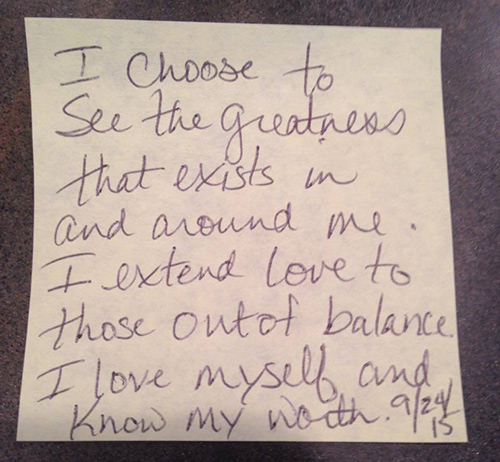 I choose to
See the greatness
that exists in
and around me.
I extend love to
those out of balance
I love myself and
know my worth. 9/24/15